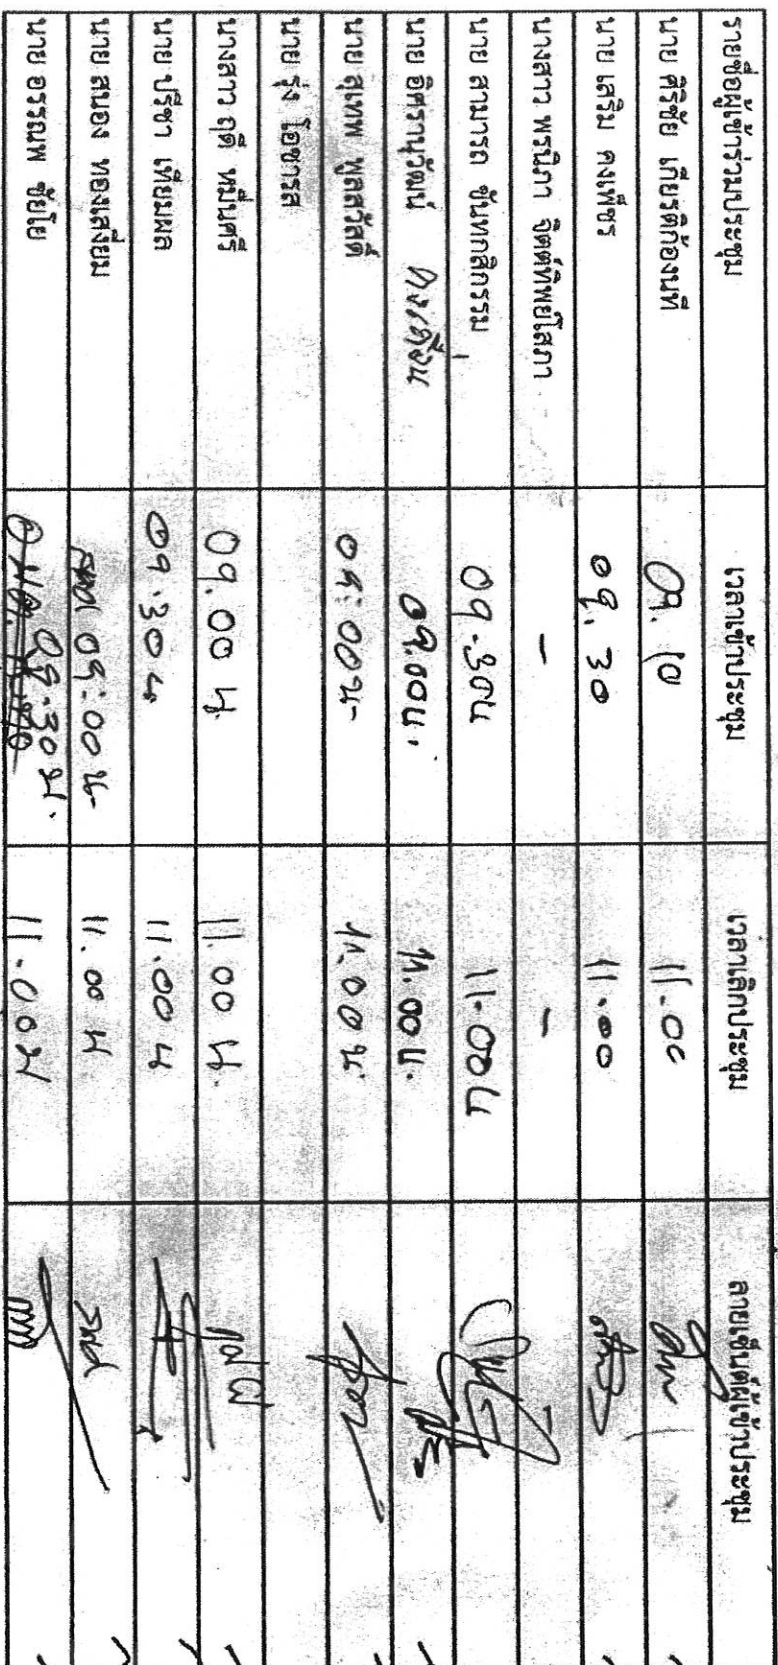 รายชื่อผู้เข้าร่วมประชุม เวลาเข้าประชุม เวลาเลิกประชุม ลายเซ็นต์ผู้เข้าประชุม
นาย ศิริชัย เกียรติก้องนที 09.10 11.00
นาย เสริม คงเพ็ชร 09.30 11.00
นางสาว พรนิภา จิตต์ทิพย์โสภา - -
นาย สามารถ ขันทกสิกรรม 09.30น 11.00น
นาย อิศรานุวัฒน์ คงเคื่อน 09.00น. 11.00น.
นาย สุเทพ พูลสวัสดิ์ 09:00น. 11.00น.
นาย รุ่ง โอชารส
นางสาว ฤดี หมื่นศรี 09.00 น. 11.00 น.
นาย ปรีชา เทียมผล 09.30 น. 11.00 น
นาย สนอง ทองเสงี่ยม 09:00 น. 11.00 น
นาย อรรณพ ชัยโย 09.30 น. 11.00น